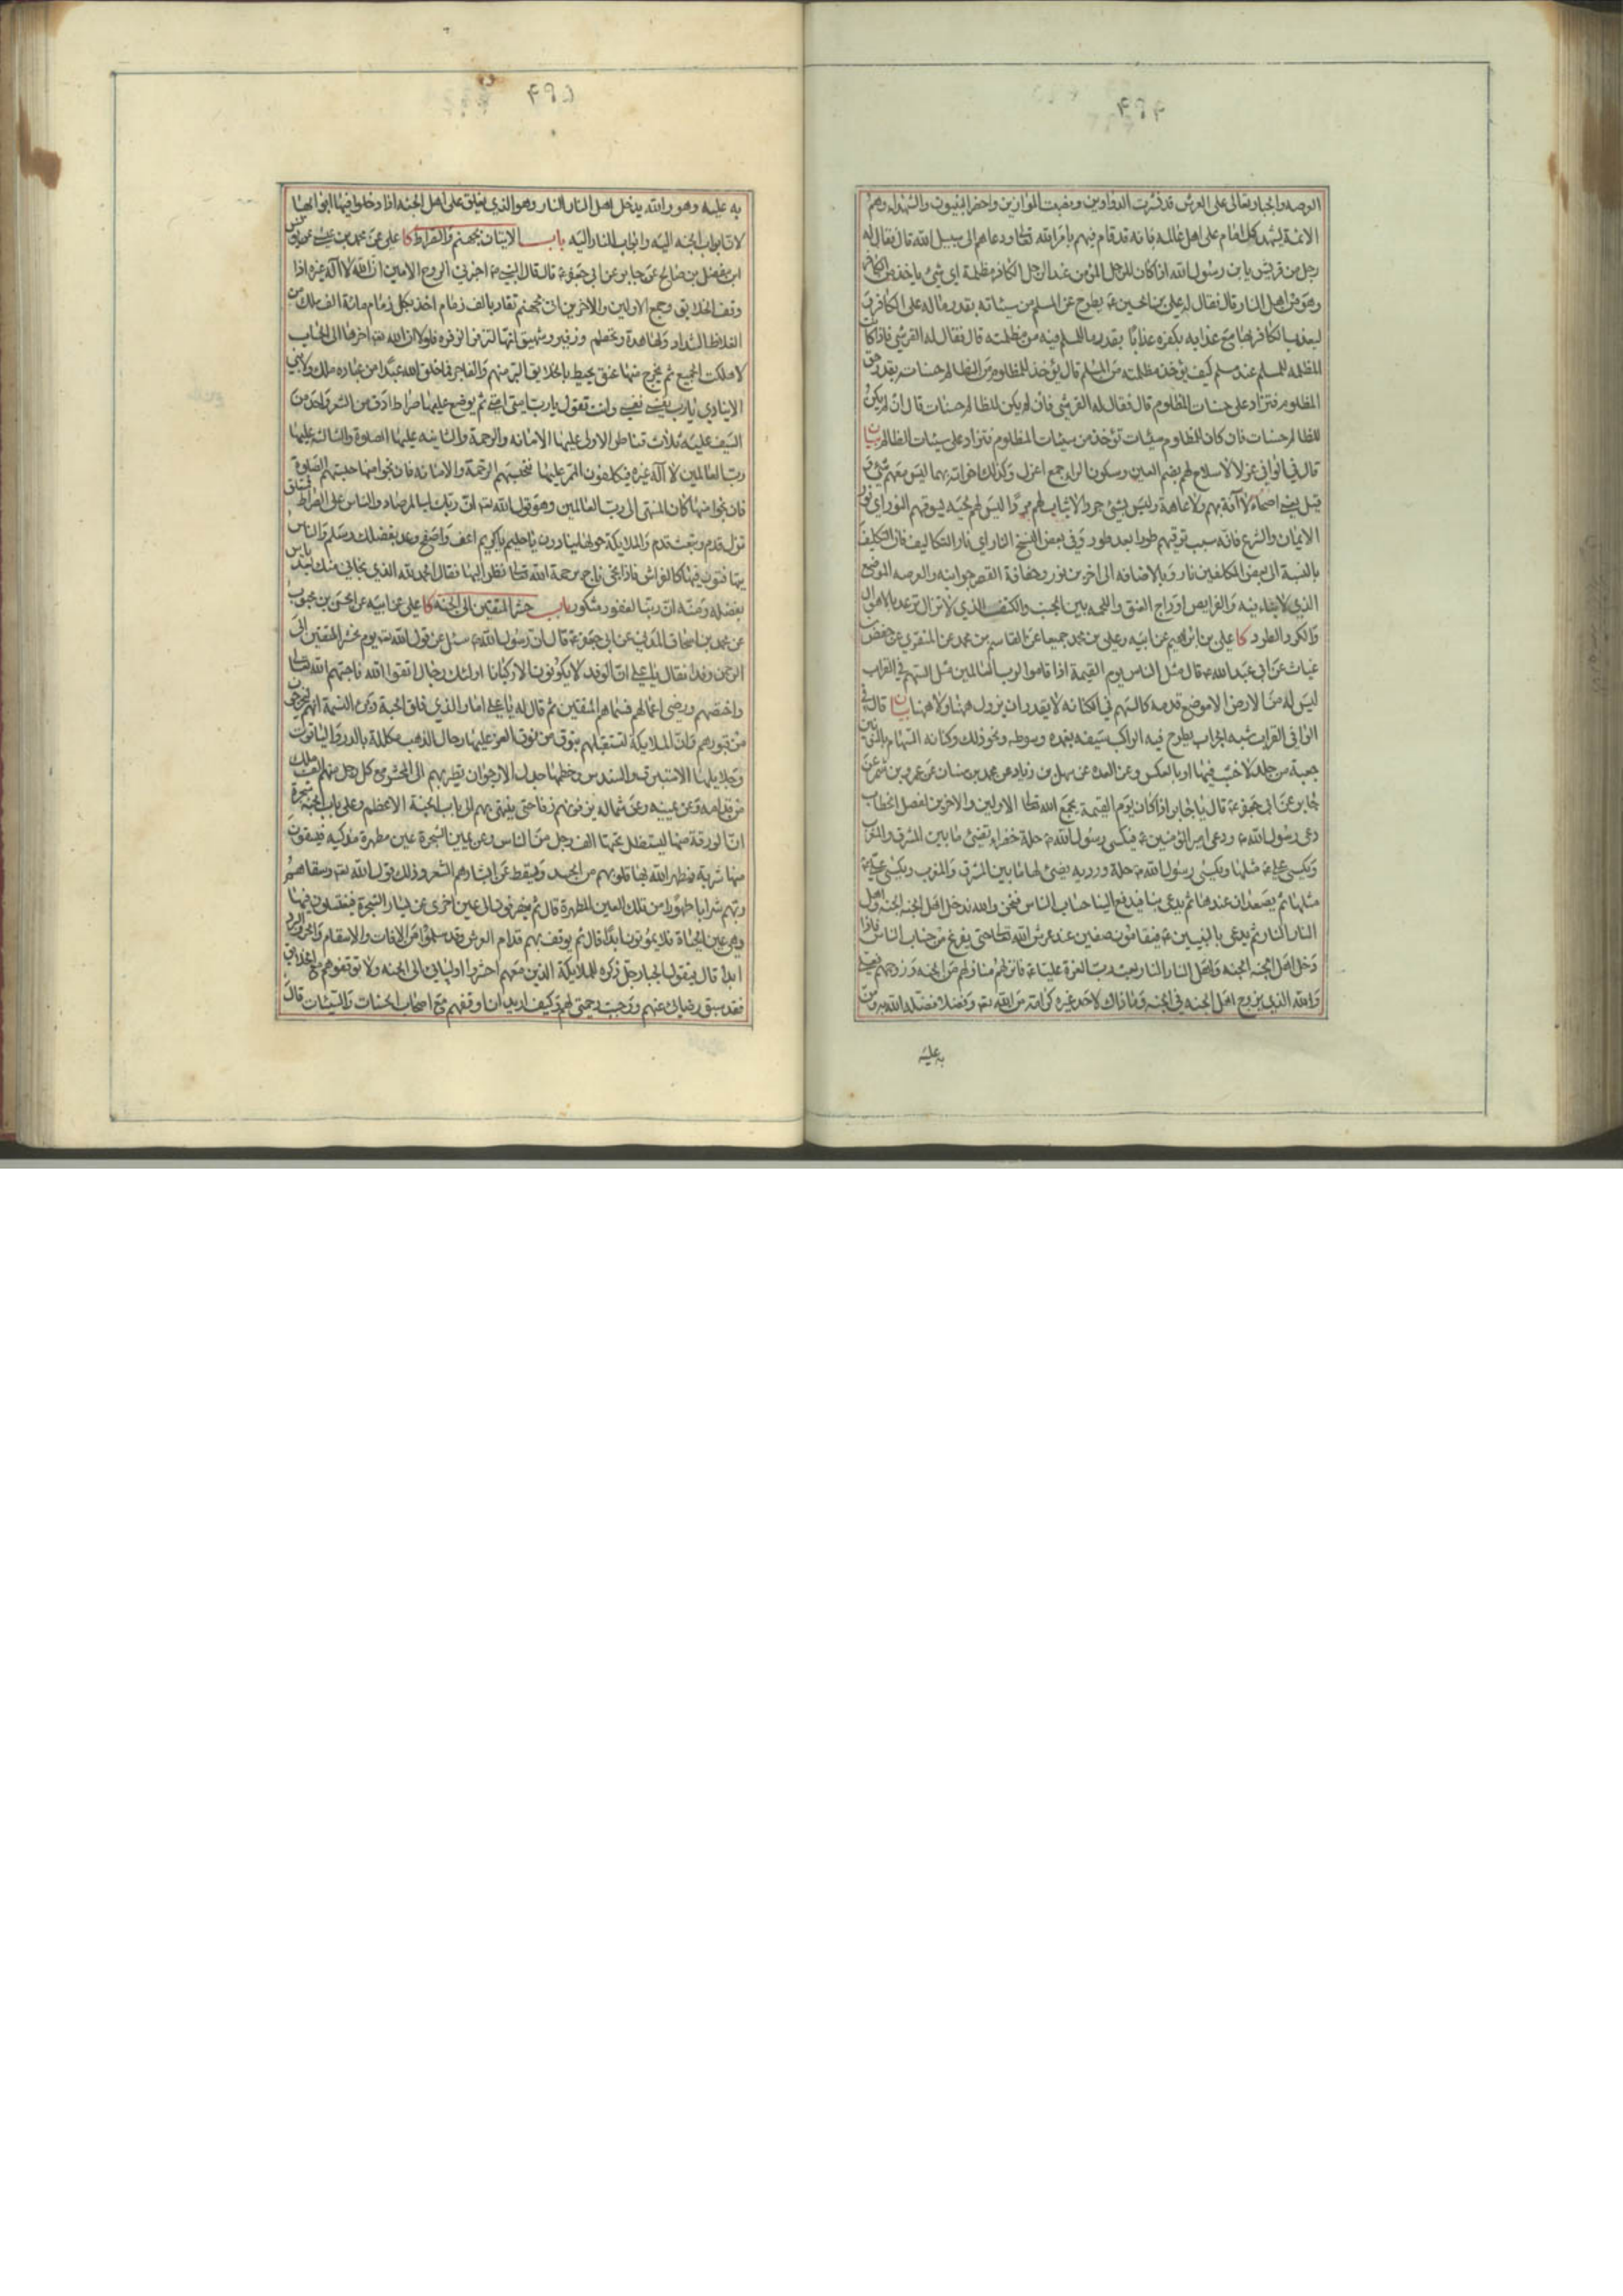 ۴۹۴
العرصه والجبار تعالى على العرش قد نشرت الدواوين ونصبت الموازين واحضر النبيون والشهداء وهم
الائمة يشهد كل امام على اهل عالمه بانه قد قام فيهم بامر الله تعالى ودعاهم الى سبيل الله قال فقال له
رجل من قريش يا بن رسول الله اذا كان للرجل المؤمن عند الرجل الكافر مظلمة اي شئ ياخذ من الكافر
وهو من اهل النار قال فقال له علي بن الحسين ع يطرح عن المسلم من سيئاته بقدر ما له على الكافر
ليعذب الكافر بها مع عذابه بكفره عذابا بقدر ما للمسلم قبله من مظلمته قال فقال له القرشي فاذا كانت
المظلمه للمسلم عند مسلم كيف يؤخذ مظلمته من المسلم قال يؤخذ للمظلوم من الظالم حسنات بقدر حق
المظلوم فتزاد على حسنات المظلوم قال فقال له القرشي فان لم يكن للظالم حسنات قال ان لم يكن
للظالم حسنات فان كان للظلوم سيئات تؤخذ من سيئات المظلوم فتزاد على سيئات الظالم بيان
قال في الوافي عزلا لاسلاح لهم بضم العين وسكون الراء جمع اعزل وكذلك اخواته بهما ليس معهم شئ و
قيل يعني اصحاء لا آفة بهم ولا عاهة وليس بشئ جردا لا ثياب لهم مردا ليس لهم لحيه يسوقهم النور اي نور
الايمان والشرع فانه سبب ترقيهم طورا بعد طور وفي بعض النسخ النار اي نار التكاليف فان التكليف
بالنسبة الى بعض المكلفين نار وبالاضافه الى اخرين نور وحفافة القصر جوانبه والعرصه الموضع
الذي لا بناء فيه والفرايص اوداج العنق واللحمه بين الجنب والكتف الذي لا تزال ترعد بالاهوال
والكرد الطرد كا علي بن ابرهيم عن ابيه وعلي بن محمد جميعا عن القاسم بن محمد عن المنقري عن حفص بن
غياث عن ابي عبد الله ع قال مثل الناس يوم القيمة اذا قاموا لرب العالمين مثل السهم في القراب
ليس له من الارض الا موضع قدمه كالسهم في الكنانه لا يقدر ان يزول ههنا ولا ههنا بيان قال في
الوافي القراب شبه الجراب يطرح فيه الراكب سيفه بغمده وسوطه ونحو ذلك وكنانه السهام بالكسر
جعبة من جلد لا خشب فيها او بالعكس وعن العده عن سهل بن زياد عن محمد بن سنان عن عمرو بن شمر عن
جابر عن ابي جعفر ع قال يا جابر اذا كان يوم القيمة يجمع الله تعالى الاولين والاخرين لفصل الخطاب
دعى رسول الله ص ودعى امير المؤمنين ع فيكسى رسول الله ص حلة خضراء تضئ ما بين المشرق والمغرب
ويكسى علي ع مثلها ويكسى رسول الله ص حلة ورديه يضئ لها ما بين المشرق والمغرب ويكسى علي ع
مثلها ثم يصعدان عندها ثم يدعى بنا فيدفع الينا حساب الناس فنحن والله ندخل اهل الجنه الجنه واهل
النار النار ثم يدعى بالنبيين ع فيقامون صفين عند عرش الله تعالى حتى يفرغ من حساب الناس فاذا
دخل اهل الجنه الجنه واهل النار النار بعث رب العزة عليا ع فانزلهم منازلهم من الجنه وزوجهم فعلي
والله الذي يزوج اهل الجنه في الجنه وما ذاك لاحد غيره كرامة من الله تعالى وفضلا فضله الله به ومن
به عليه
۴۹۵
به عليه وهو والله يدخل اهل النار النار وهو الذي يغلق على اهل الجنه اذا دخلوا فيها ابوابها
لان ابواب الجنه اليه وابواب النار اليه باب الاتيان بجهنم والصراط كا علي عن محمد بن عيسى عن يونس
عن مفضل بن صالح عن جابر عن ابي جعفر ع قال قال النبي ص اخبرني الروح الامين ان الله لا اله غيره اذا
وقف الخلايق وجمع الاولين والاخرين اتى بجهنم تقاد بالف زمام اخذ بكل زمام مائة الف ملك من
الغلاظ الشداد ولها هدة وتحطم وزفير وشهيق انها لتزفر الزفرة فلولا ان الله تعالى اخرها الى الحساب
لاهلكت الجميع ثم يخرج منها عنق يحيط بالخلايق البر منهم والفاجر فما خلق الله عبدا من عباده ملك ولا نبي
الا ينادي يارب نفسي نفسي وانت تقول يا رب امتي امتي ثم يوضع عليها صراط ادق من الشعر واحد من
السيف عليه ثلاث قناطر الاولى عليها الامانه والرحمة والثانيه عليها الصلوة والثالثه عليها
رب العالمين لا اله غيره فيكلفون الممر عليها فتحبسهم الرحمة والامانه فان نجوا منها حبستهم الصلوة
فان نجوا منها كان المنتهى الى رب العالمين وهو قول الله تعالى ان ربك لبالمرصاد والناس على الصراط فمتعلق
تزل قدم وتثبت قدم والملايكة حولها ينادون يا حليم يا كريم اعف واصفح وعد بفضلك وسلم والناس
يتهافتون فيها كالفراش فاذا نجى ناج برحمة الله تعالى نظر اليها فقال الحمد لله الذي نجاني منك بعد ياس
بفضله ومنه ان ربنا لغفور شكور باب حشر المتقين الى الجنه كا علي عن ابيه عن الحسن بن محبوب
عن محمد بن اسحاق المدني عن ابي جعفر ع قال ان رسول الله ص سئل عن قول الله تعالى يوم نحشر المتقين الى
الرحمن وفدا فقال يا علي ان الوفد لا يكونون الا ركبانا اولئك رجال اتقوا الله فاحبهم الله تعالى
واختصهم ورضي اعمالهم فسماهم المتقين ثم قال له يا علي اما والذي فلق الحبة وبرئ النسمة انهم ليخرجون
من قبورهم وان الملايكة لتستقبلهم بنوق من نوق العز عليها رحال الذهب مكللة بالدر والياقوت
وجلايلها الاستبرق والسندس وخطمها جدل الارجوان تطير بهم الى المحشر مع كل رجل منهم الف ملك
من قدامه وعن يمينه وعن شماله يزفونهم زفا حتى ينتهى بهم الى باب الجنة الاعظم وعلى باب الجنه شجرة
ان الورقة منها ليستظل تحتها الف رجل من الناس وعن يمين الشجرة عين مطهرة مزكيه فيسقون
منها شربة فيطهر الله بها قلوبهم من الحسد ويسقط عن ابشارهم الشعر وذلك قول الله تعالى وسقاهم
ربهم شرابا طهورا من تلك العين المطهرة قال ثم يصرفون الى عين اخرى عن يسار الشجرة فيغتسلون فيها
وهي عين الحياة فلا يموتون ابدا قال ثم يوقف بهم قدام العرش وقد سلموا من الافات والاسقام والحر والبرد
ابدا قال فيقول الجبار جل ذكره للملايكة الذين معهم احشروا اوليائي الى الجنه ولا توقفوهم مع الخلايق
فقد سبق رضائي عنهم ووجبت رحمتي لهم وكيف اريد ان اوقفهم مع اصحاب الحسنات والسيئات قال